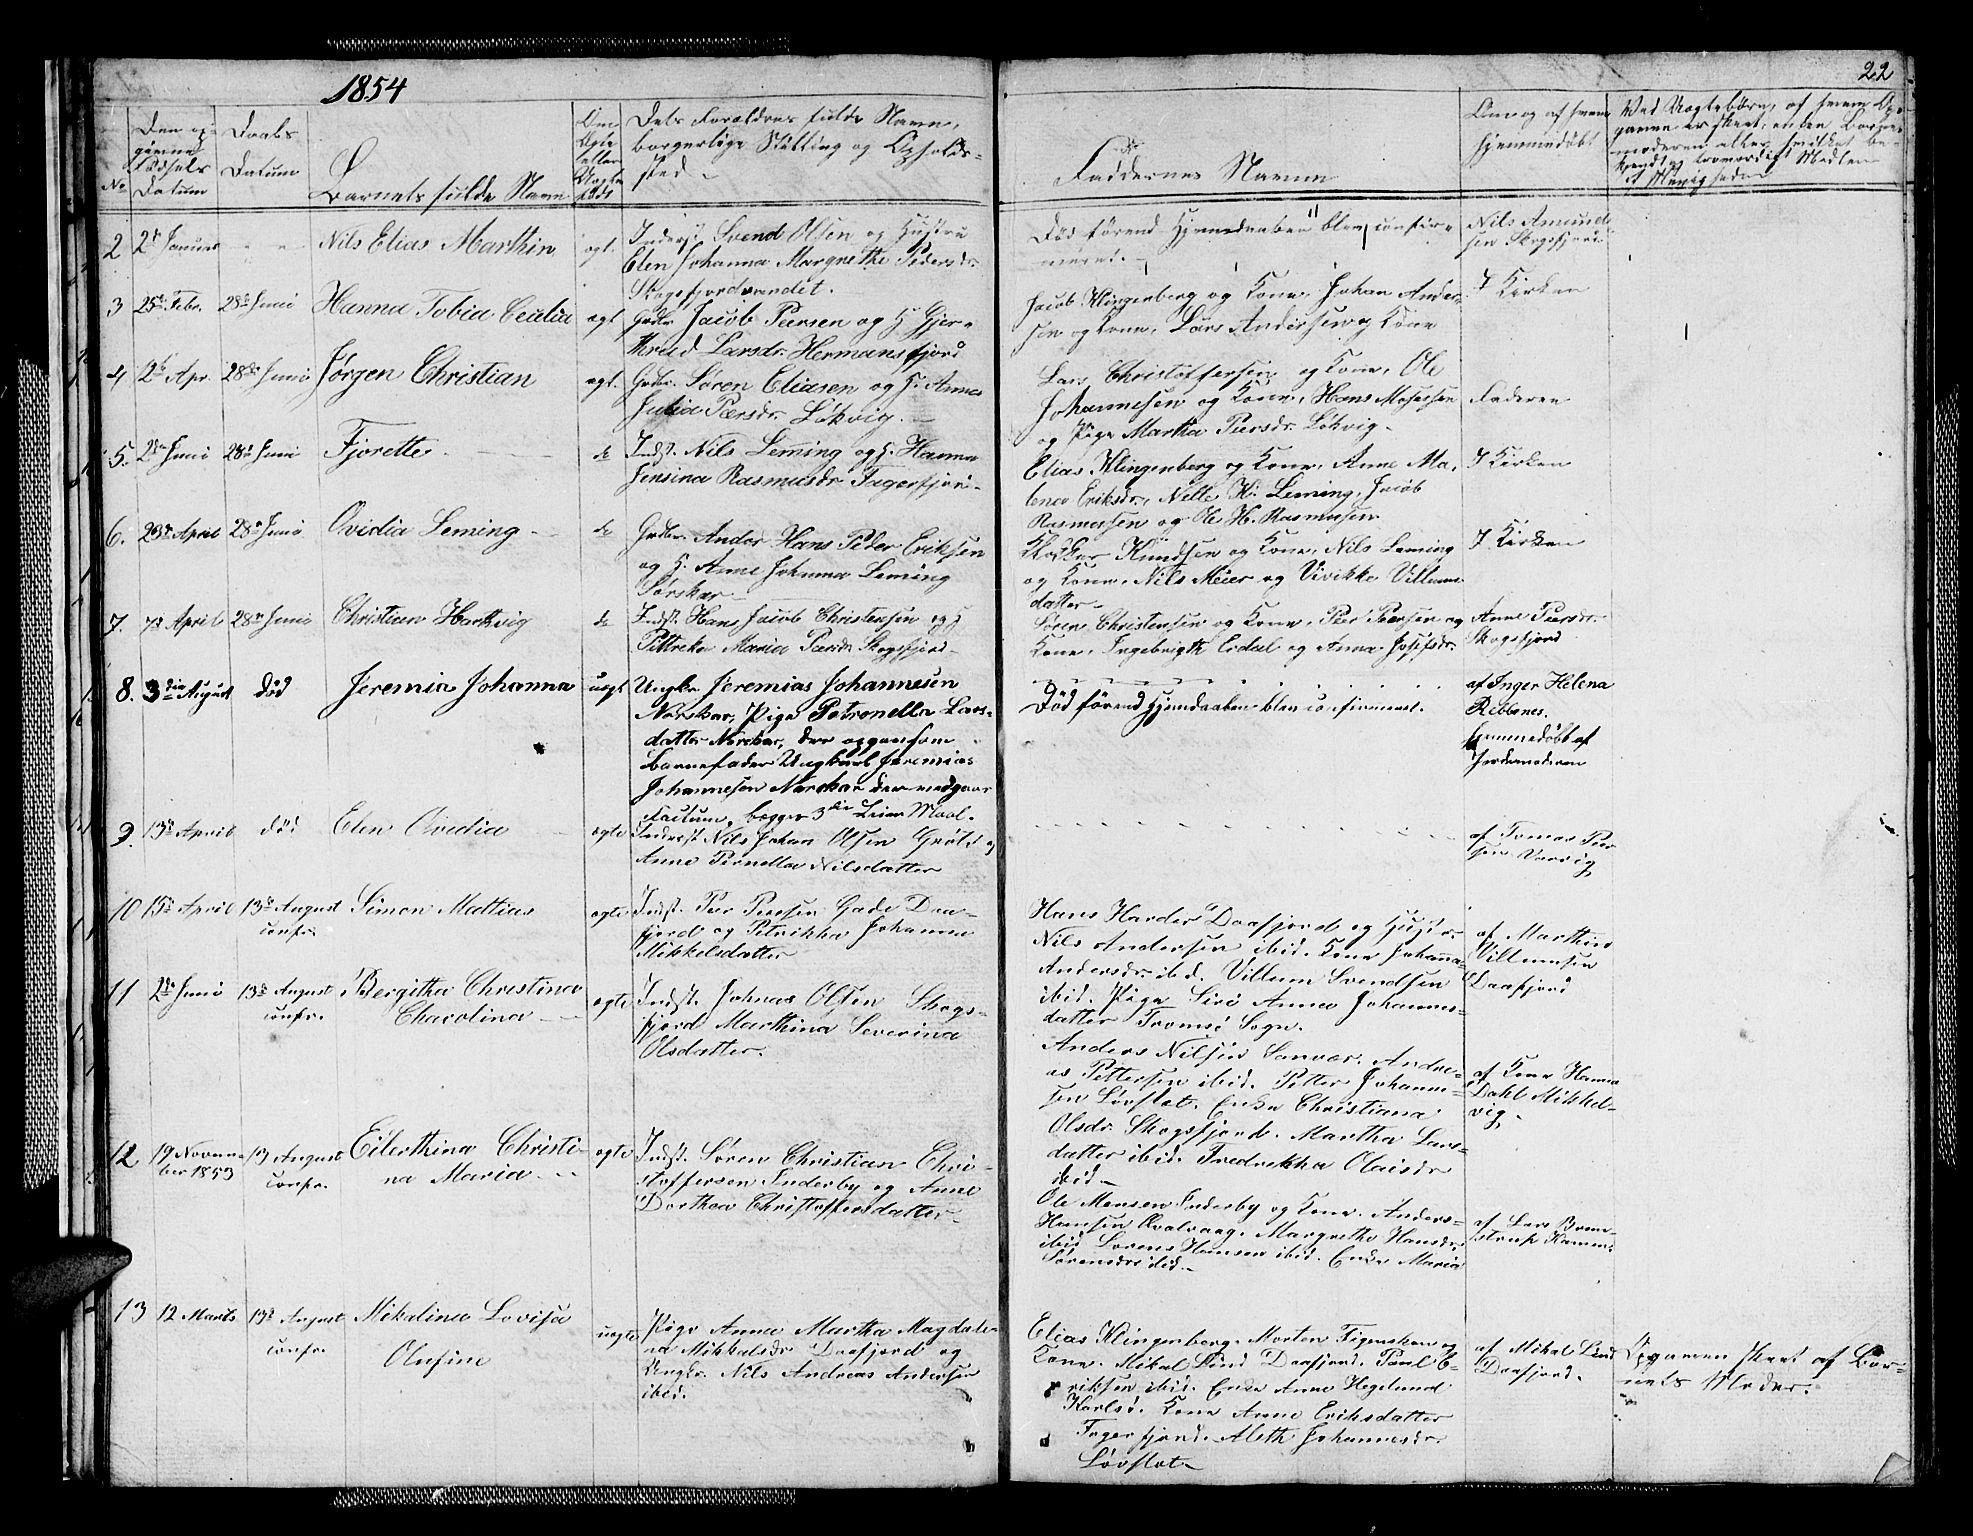 1854
22
No
Datum
Daabs
Datum
Barnets fulde Navn
Dets Forældres fulde Navn,
borgerlige Stilling og Opholds-
sted
Faddernes Navne
hjemmedøbt
2
Nils Elias Marthin
ægt.
Svend Olsen og Hustru
Elen Johanna Margrethe Pedersdr.
Skogsfjordvandet.
Død førend Hjemmedaaben blev confir-
meret.
Nils Amund-
sen Skogsfjord
3
25de Febr.
28de Juni
Hanna Tobia Cecilia
ægt
Gdbr. Jacob Peersen og H. Gjer-
thrud Larsdr. Hermansfjord
Jacob Klingenberg og Kone, Johan Ander-
sen og Kone, Lars Andersen og Kone
I Kirken
4
2de Apr.
28de Juni
Jørgen Christian
ægt.
Gdbr. Søren Eliasen og H. Anne
Julia Peersdr. Løkvig.
Lars Christoffersen og Kone, Ole
Johannesen og Kone, Hans Mosessen
og Pige Martha Peersdr. Løkvig.
Faderen
5.
2den Juni
28de Juni
Fjorette
do
Indst. Nils Leming og H. Hanna
Jensina Rasmusdr. Fagerfjord
Elias Klingenberg og Kone, Anne Ma-
lena Eriksdr., Nille H. Leming, Jacob
Rasmussen og Ole H. Rasmusen
I Kirken
6.
23de April
28de Juni
Ovidia Leming
do
Gdbr. Andor Hans Peder Eriksen
og H. Anne Johanna Leming
Sørskar
Knudsen og Kone, Nils Leming
og Kone, Nils Meier og Vivikke Villums-
datter
I Kirken
7.
7de April
28de Juni
Christian Hartvig
do
Indst. Hans Jacob Christensen og H
Pettreka Maria Peersdr. Skogsfjord
Søren Christensen og Kone, Peer Peersen og
Kone, Ingebrigth Erdal og Anna Josefsdr.
Anne Peersdr.
Skogsfjord
8.
3die August
død
Jeremia Johanna
uægt
Ungkr. Jeremias Johannesen
Norskar, Pige Petronella Lars-
datter Norskar, der opgav som
Barnefader Ungkarl Jeremias
Johannesen Norskar der vedgaar
Factum, begges 3die Leiermaal.
Død førend Hjemdaaben blev confirmeret.
af Inger Helena
Rebbenes.
hjemmedøbt af
Jordemoderen
9.
13de April
død
Elen Ovidia
ægte
Inderst Nils Johan Olsen Grøtø og
Anne Pernella Nilsdatter
af Tomas Peer
sen
10
15de April
13de August
confr.
Simon Mattias
ægte
Indst. Peer Peersen Gade Daa-
fjord og Petrikka Johanna
Mikkelsdatter
Hans Harder Daafjord og Hustr.
Nils Andersen ibid. Kone Johanna
Andersdr. ibd. Villum Svendsen
ibid. Pige Siri Anna Johannes-
datter Tromsø Sogn.
af Marthin
Villumsen
Daafjord
11
2de Juni
13de August
confr.
Bergitha Christina
Charolina
ægte
Indst. Johnas Olsen Skogs-
fjord Marthina Severina
Olsdatter.
Anders Nilsen Sanvær. Andre-
as Pettersen ibid. Petter Johanne-
sen Løvslet. Enke Christiana
Olsdr. Skogsfjord. Martha Lars-
datter ibid. Fredrekka Olaisdr
ibid.
af Kone Hanna
Dahl Mikkel-
vig.
12
19 Novem-
ber 1853
13 August
confr.
Eilerthina Christi-
na Maria
ægte
Indst. Søren Christian Chri-
stoffersen Inderby og Anne
Dorthea Christoffersdatter
Ole Monsen Inderby og Kone. Anders
Hansen Qvalvaag. Margrethe Hansdr.
ibid. Lorens Hansen ibid. Enke Maria
Sørensdr. ibid.
af Lars Brem-
strup
13
12 Marts
13de August
confr.
Mikalina Lovisa
Olufine
uægte
Pige Anna Martha Magdale-
na Mikkelsdr Daafjord og
Ungkr. Nils Andreas Andersen
ibid.
Elias Klingenberg. Morten Figenskou og
Kone. Mikal Lund Daafjord. Poul E-
riksen ibid. Enke Anne Hegelund
Karlsø. Kone Anne Eriksdatter
Fagerfjord. Aleth Johannesdr.
Løvslet
af Mikal Lund
Daafjord.
Opgaven skeet af Bar-
nets Moder.